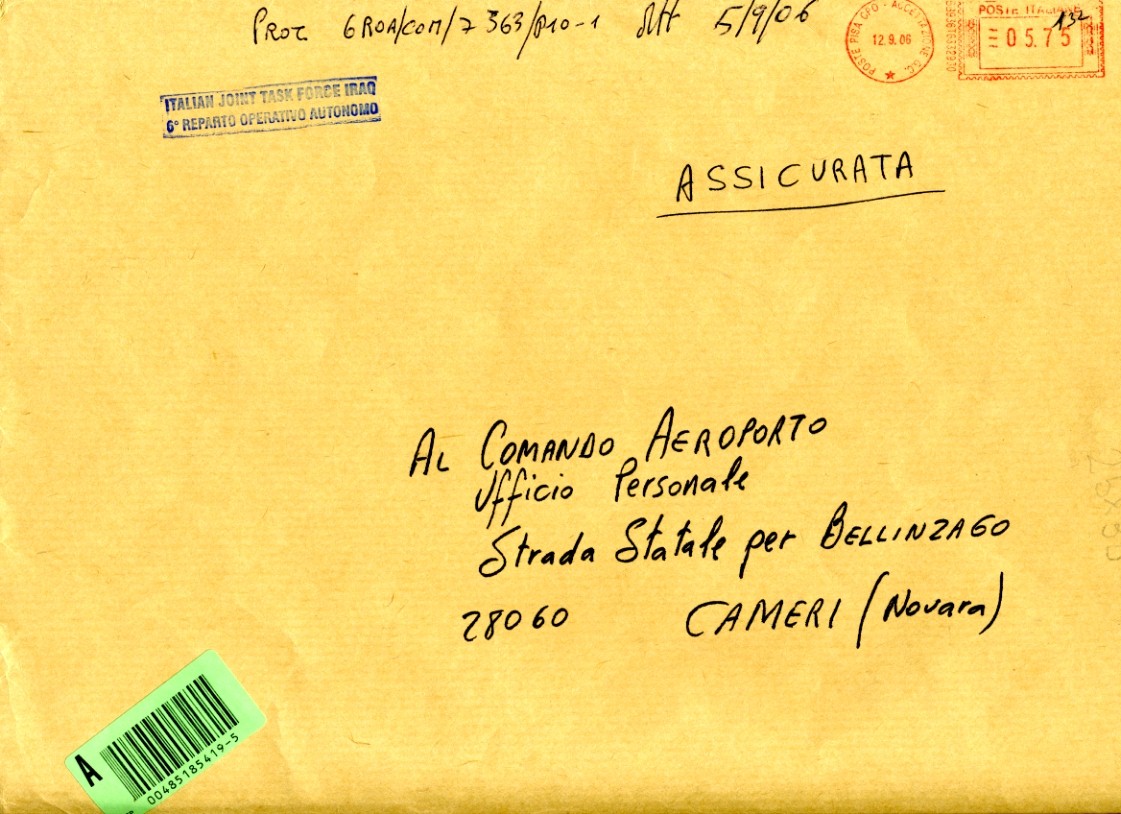 Prot 6ROA/COM/7363/P10-1 5/9/06
POSTE PISA CPO - ACCETTAZIONE G.C.
12.9.06
POSTE ITALIANE
132
≡05.75
ITALIAN JOINT TASK FORCE IRAQ
6° REPARTO OPERATIVO AUTONOMO
ASSICURATA
AL COMANDO AEROPORTO
Ufficio Personale
Strada Statale per BELLINZAGO
28060 CAMERI (Novara)
A
00485185419-5